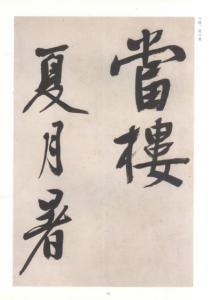 當樓
夏月暑